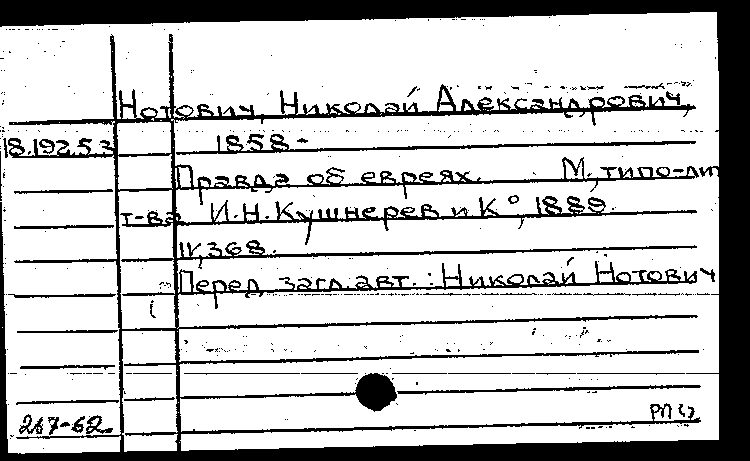 Нотович, Николай Александрович,
18.192.5.3 1858-
Правда об евреях. М., типо-лит
т-ва И.Н.Кушнерев и К°, 1889.
IV, 368.
Перед загл. авт.: Николай Нотович
267-62.